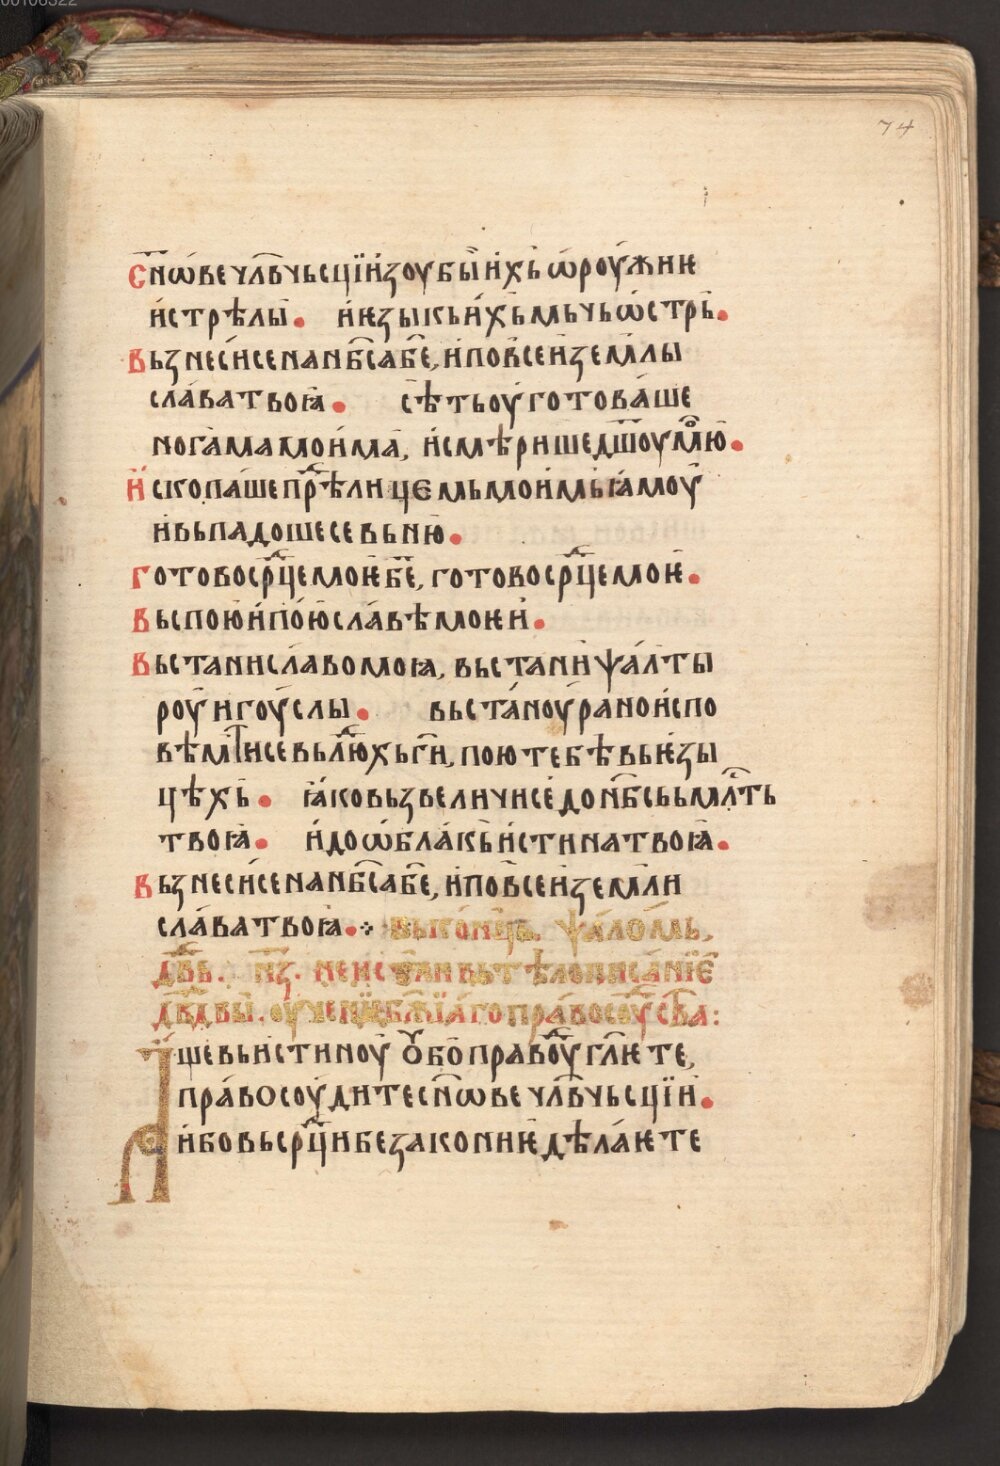 00106322
74
сн҃ѡве чл҃вчьсціи зоубы ихь ѡроужиѥ
и стрѣлы. и ѥзыкь ихь мьчь ѡстрь.
Вьзнесисе на нб҃са бе҃, и по всеи земли
слава твоꙗ. сѣть оуготоваше
ногама моима, и смѣрише дш҃оу мою.
Ископаше прѣд лицемь моимь ꙗмоу
и вьпадошесе вь ню.
Готово срд҃це моѥ бе҃, готово срд҃це моѥ.
Вьспою и пою славѣ моѥи.
Вьстани слава моꙗ, вьстани ψалты
роу и гоуслы. вьстаноу рано испо
вѣмтисе вь людехь ги҃, пою тебѣ вь ѥзы
цѣхь. ꙗко вьзвеличисе до нб҃сь мл҃сть
твоꙗ. и до ѡблакь истина твоꙗ.
Вьзнесисе на нб҃са бе҃, и по всеи земли
слава твоꙗ. вь коньць. ψаломь,
дв҃дь. нз. не истли вь тѣлописаніе
дв҃дви. оученіе бж҃іаго правосоуства:
Аще вь истиноу оубо правдоу гл҃ѥте,
право соудите сн҃ѡве чл҃вчьсціи.
ибо вь срд҃ци безакониѥ дѣлаѥте